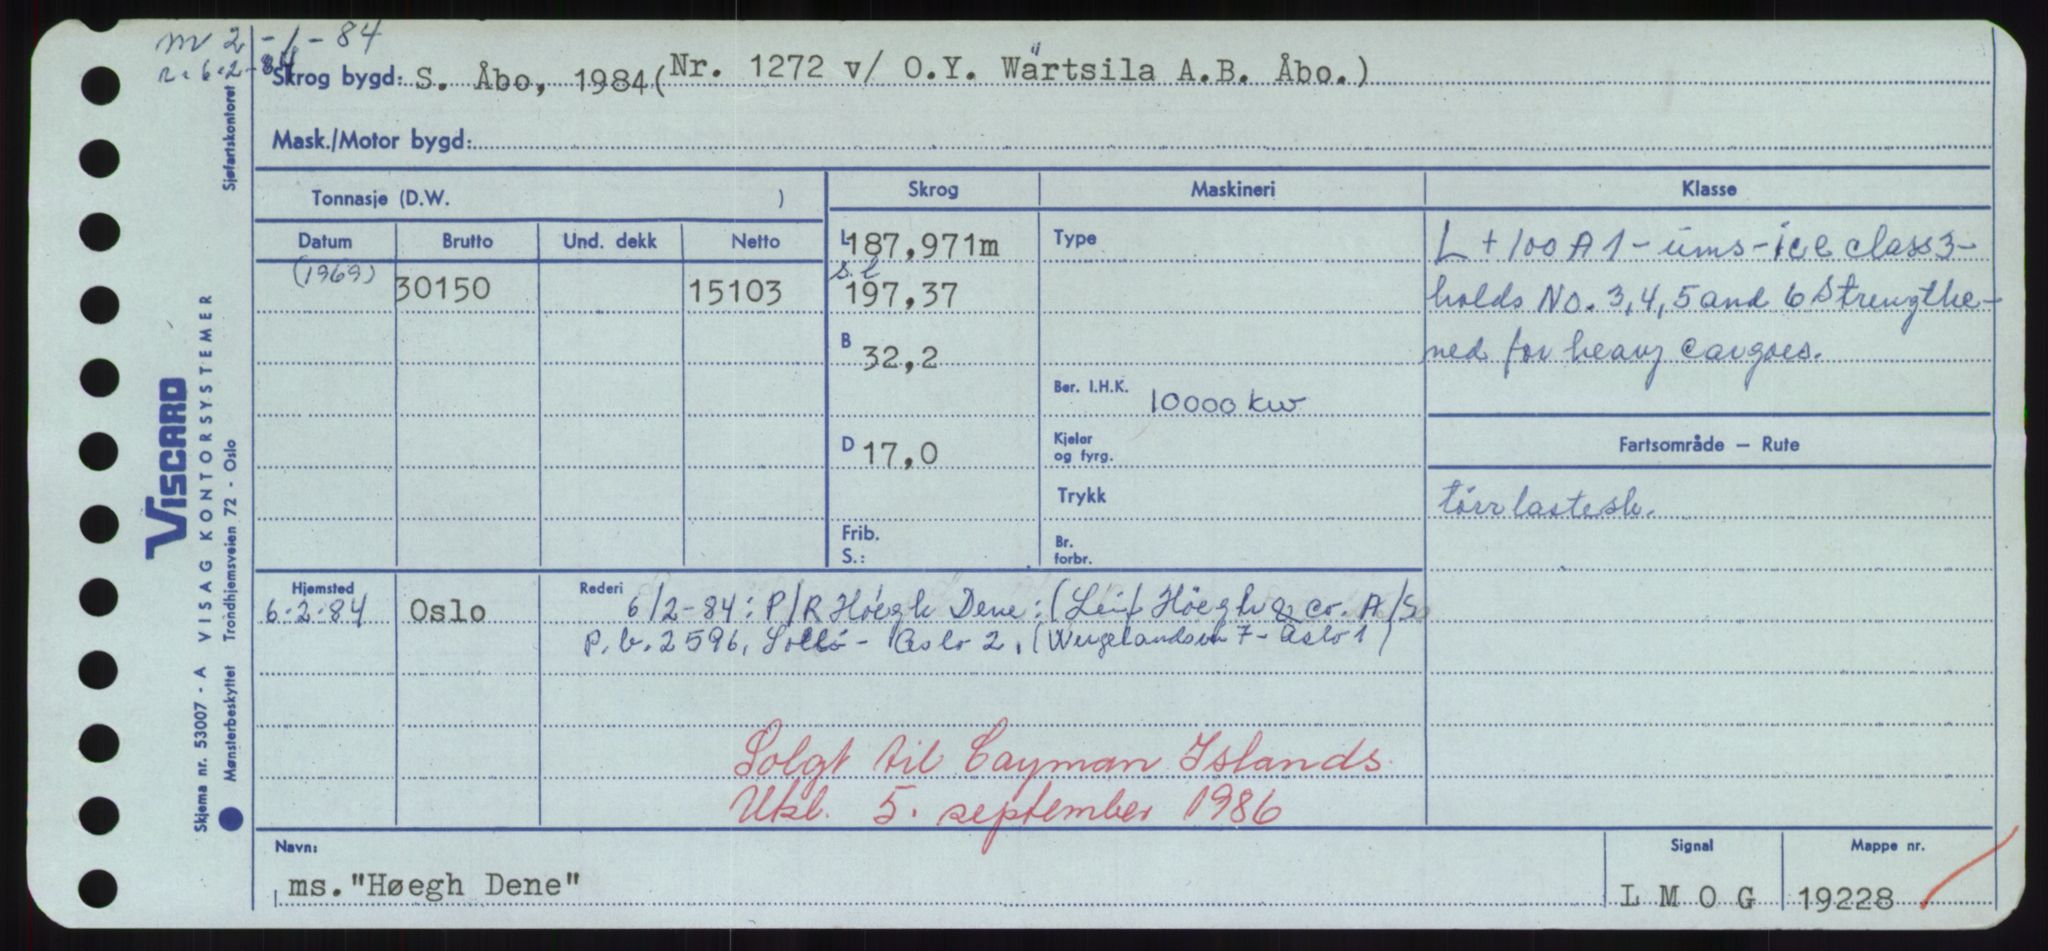 m 2-1-84
r. 6-2-84
Skrog bygd: S. Åbo, 1984 (Nr. 1272 v/ O.Y. Wärtsila A.B. Åbo.)
Mask./Motor bygd:
Tonnasje (D.W. )
Skrog Maskineri Klasse
Datum Brutto Und. dekk Netto
(1969) 30150 15103
L 187,971m
s.l 197,37
B 32,2
D 17,0
Frib.
S.:
Type
Ber. I.H.K. 10000 kw
Kjeler
og fyrg.
Trykk
Br.
forbr.
L + 100 A 1 - ums - ice class 3 -
holds No. 3, 4, 5 and 6 Strengthe-
ned for heavy cargoes.
Fartsområde — Rute
törrlastesk.
Hjemsted
6-2-84 Oslo
Rederi
6/2-84: P/R Höegh Dene: (Leif Höegh & co. A/S
P.b. 2596, Solli - Oslo 2. (Wergelandsvn 7 - Oslo 1)
Solgt til Cayman Islands.
Utkl. 5. september 1986
Navn:
ms. "Høegh Dene"
Signal
L M O G
Mappe nr.
19228
Sjøfartskontoret
VISCARD
VISAG KONTORSYSTEMER
Trondhjemsveien 72 - Oslo
Skjema nr. 53007 - A
Mønsterbeskyttet